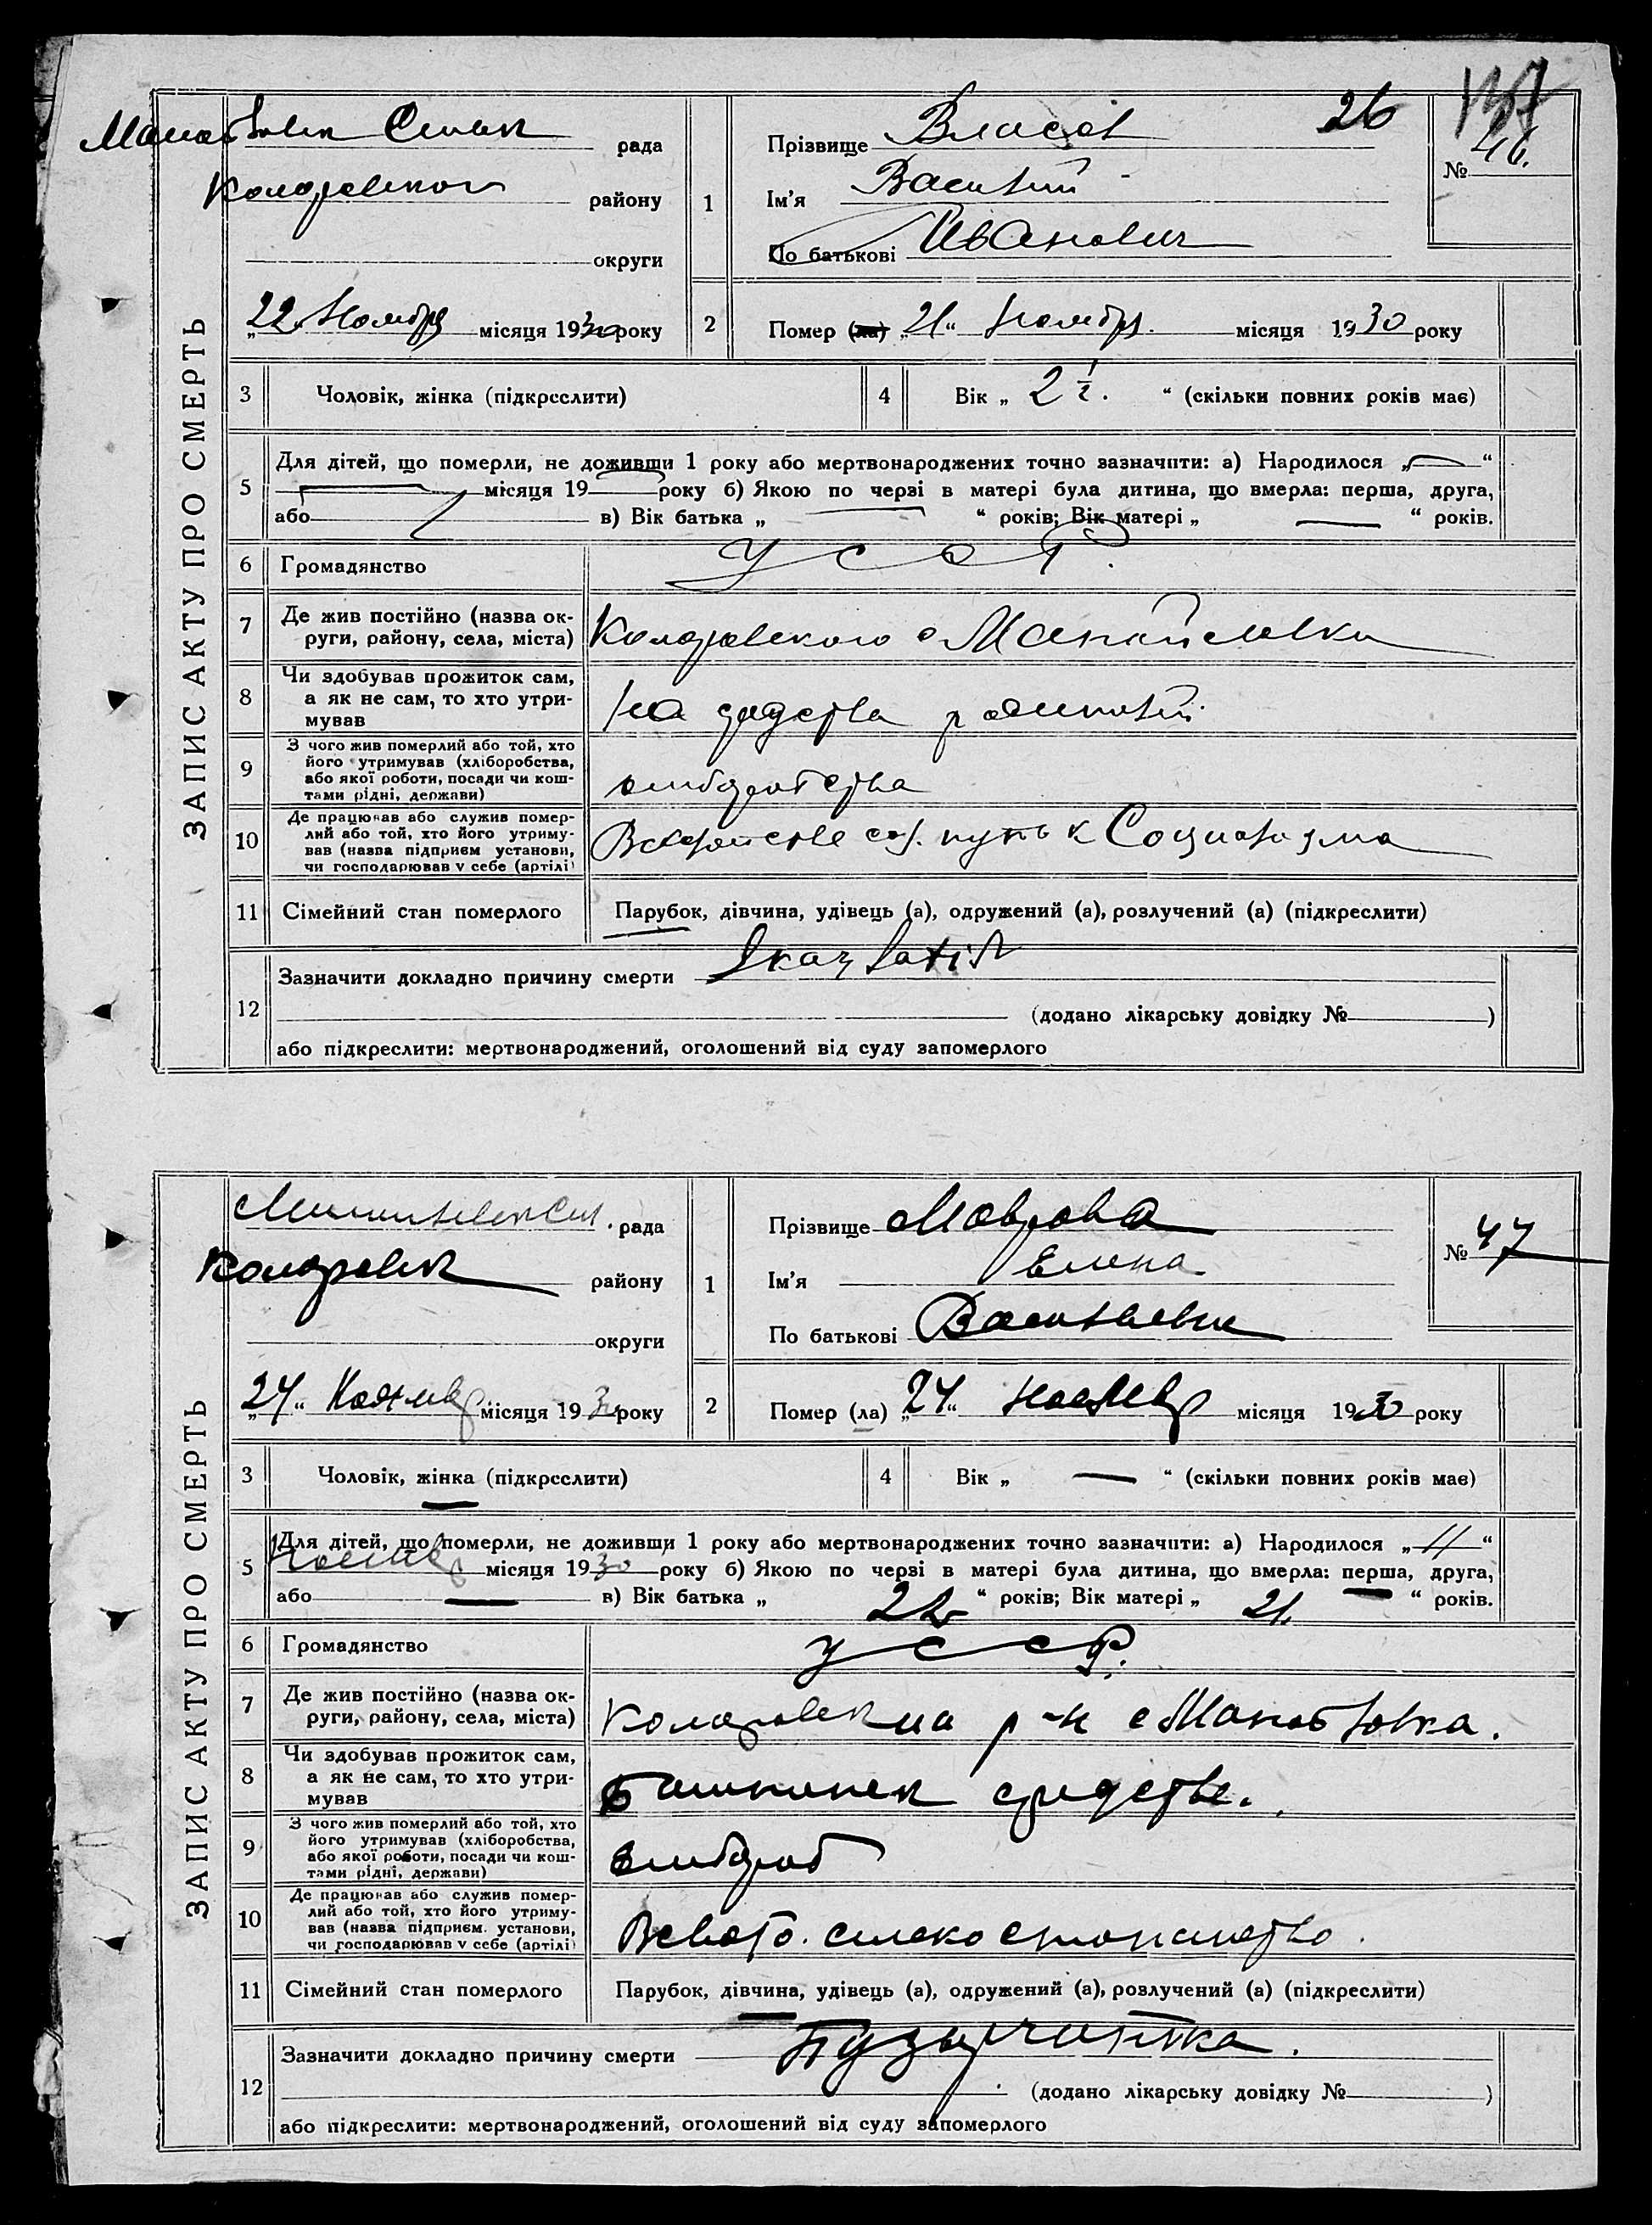 ЗАПИС АКТУ ПРО СМЕРТЬ
рада
району
округи
„22„ Ноября місяця 1930 року
1
Прізвище Власов
26
Ім'я Василий
По батькові Иванович
№ 46.
2
Помер (ла) „21“ Ноября. місяця 1930 року
3
Чоловік, жінка (підкреслити)
4
Вік „ 2 ½. “ (скільки повних років має)
5
Для дітей, що померли, не доживши 1 року або мертвонароджених точно зазначити: а) Народилося „ — “
місяця 19 року б) Якою по черзі в матері була дитина, що вмерла: перша, друга,
або в) Вік батька „ — “ років; Вік матері „ — “ років.
6
Громадянство
УССР.
7
Де жив постійно (назва ок-
руги, району, села, міста)
8
Чи здобував прожиток сам,
а як не сам, то хто утри-
мував
На средства
9
З чого жив померлий або той, хто
його утримував (хліборобства,
або якої роботи, посади чи кош-
тами рідні, держави)
10
Де працював або служив помер-
лий або той, хто його утриму-
вав (назва підприєм установи,
чи господарював у себе (артілі)
путь к Социализма
11
Сімейний стан померлого
Парубок, дівчина, удівець (а), одружений (а), розлучений (а) (підкреслити)
12
Зазначити докладно причину смерти
(додано лікарську довідку № )
або підкреслити: мертвонароджений, оголошений від суду запомерлого
ЗАПИС АКТУ ПРО СМЕРТЬ
рада
району
округи
„24“ місяця 1930 року
1
Прізвище Маврова
Ім'я Елена
По батькові Васильевна
№ 47
2
Помер (ла) „24“ місяця 1930 року
3
Чоловік, жінка (підкреслити)
4
Вік „ — “ (скільки повних років має)
5
Для дітей, що померли, не доживши 1 року або мертвонароджених точно зазначити: а) Народилося „11“
місяця 1930 року б) Якою по черзі в матері була дитина, що вмерла: перша, друга,
або — в) Вік батька „ 22 “ років; Вік матері „ 21. “ років.
6
Громадянство
УССР.
7
Де жив постійно (назва ок-
руги, району, села, міста)
р-н с
8
Чи здобував прожиток сам,
а як не сам, то хто утри-
мував
9
З чого жив померлий або той, хто
його утримував (хліборобства,
або якої роботи, посади чи кош-
тами рідні, держави)
10
Де працював або служив помер-
лий або той, хто його утриму-
вав (назва підприєм. установи,
чи господарював у себе (артілі)
11
Сімейний стан померлого
Парубок, дівчина, удівець (а), одружений (а), розлучений (а) (підкреслити)
12
Зазначити докладно причину смерти
(додано лікарську довідку № )
або підкреслити: мертвонароджений, оголошений від суду запомерлого